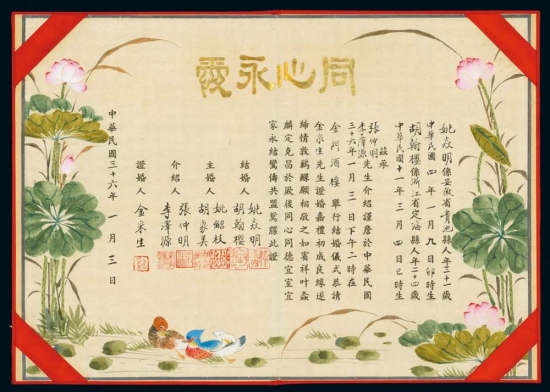 同心永愛
姚焱明係安徽省貴池縣人年三十一歲
中華民國四年一月九日卯時生
胡翰櫻係浙江省定海縣人年二十四歲
中華民國十一年三月四日巳時生
茲承
張仲明
李澤源先生介紹謹詹於中華民國
三十六年一月三日下午二時在
金門酒樓舉行結婚儀式恭請
金宋生先生證婚嘉禮初成良緣遂
締情敦鶼鰈願相敬之如賓祥叶螽
麟定克昌於厥後同心同德宜室宜
家永結鸞儔共盟鴛牒此證
結婚人 姚焱明
胡翰櫻
主婚人 姚紹枝
胡家美
介紹人 張仲明
李澤源
證婚人 金宋生
中華民國三十六年一月三日